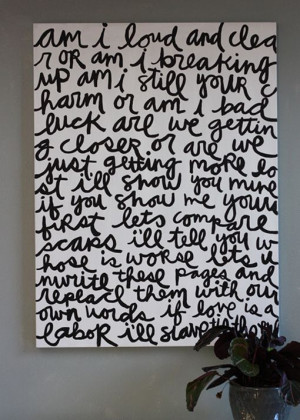 am i loud and clea
r OR am i breaking
up am i still your c
harm or am i bad
luck are we gettin
g closer or are we
just getting more lo
st ill show you mine
if you show me your
first lets compare
scars ill tell you w
hose is worse lets u
nwrite these pages and
replace them with our
own words if love is a
labor i'll slave